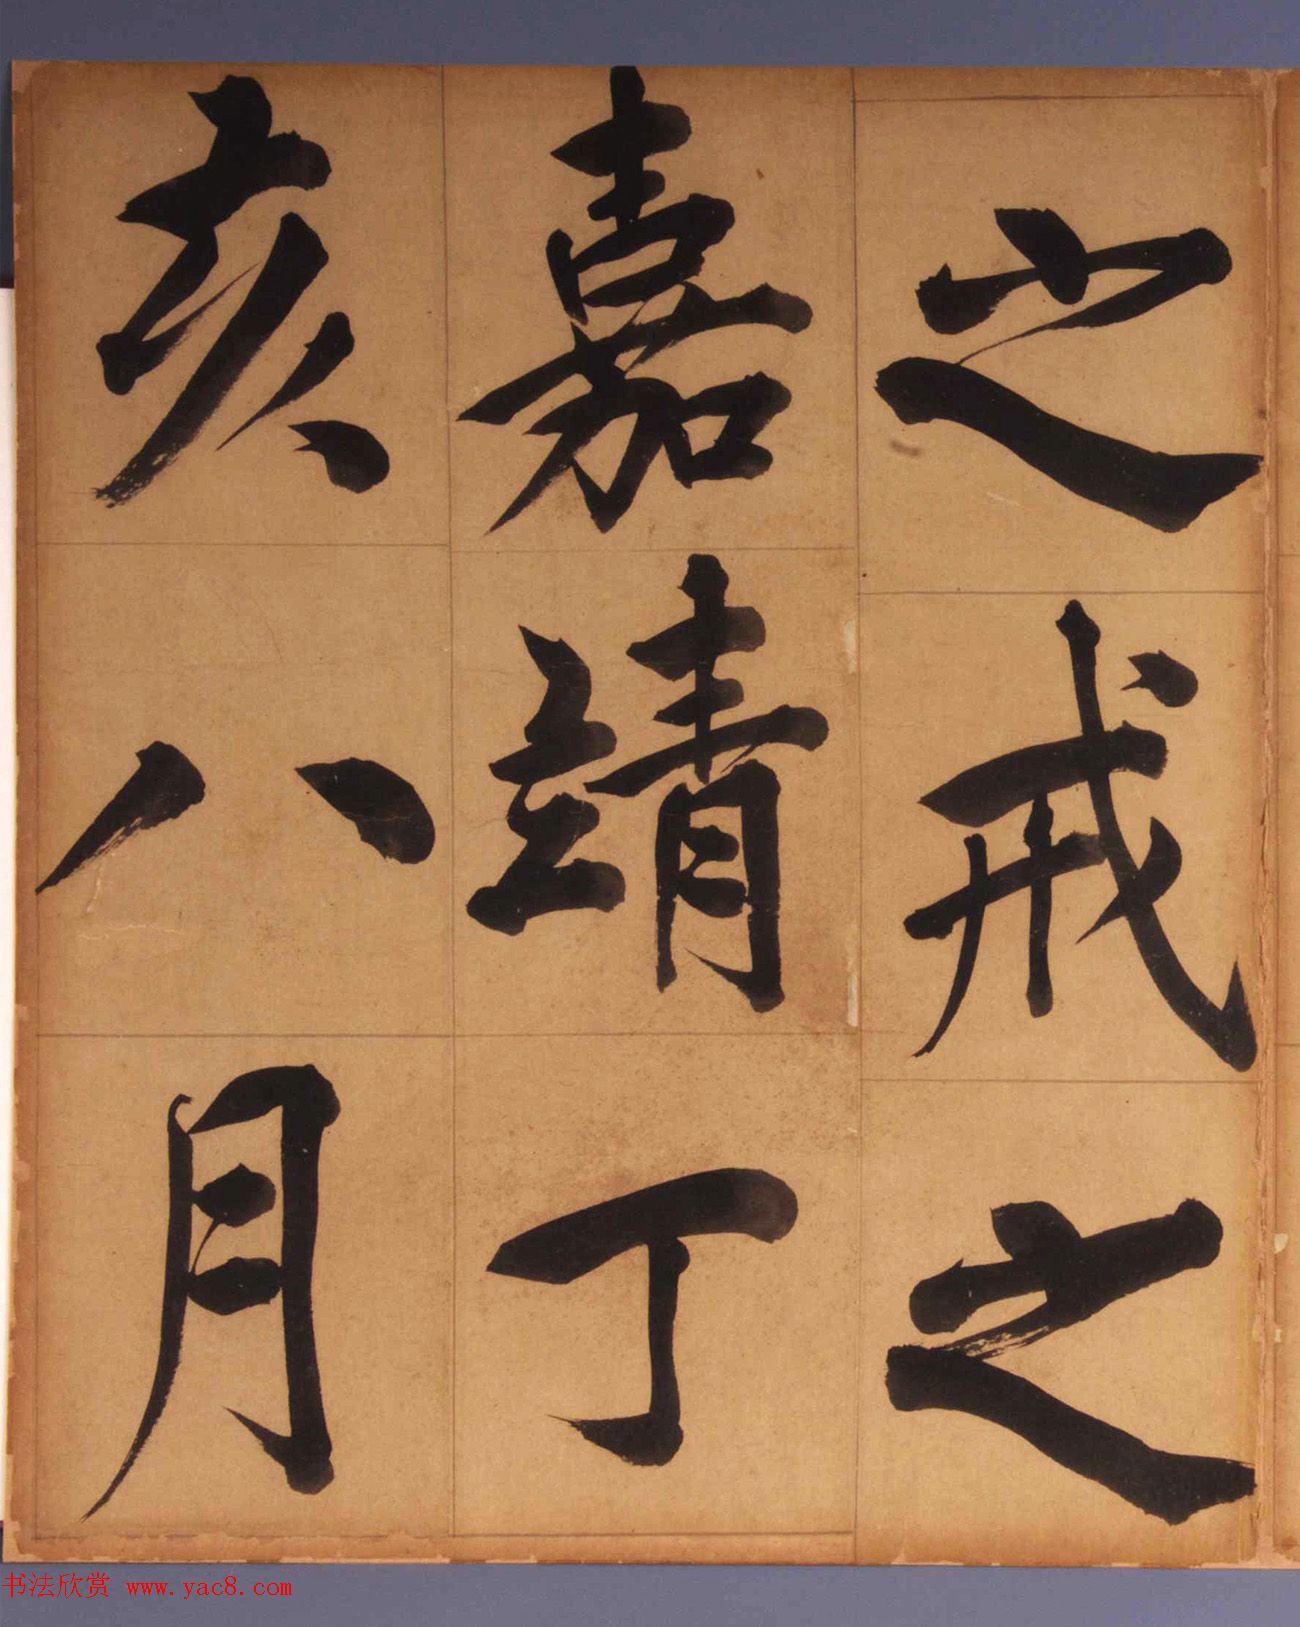 之戒之
嘉靖丁
亥八月
书法欣赏 www.yac8.com